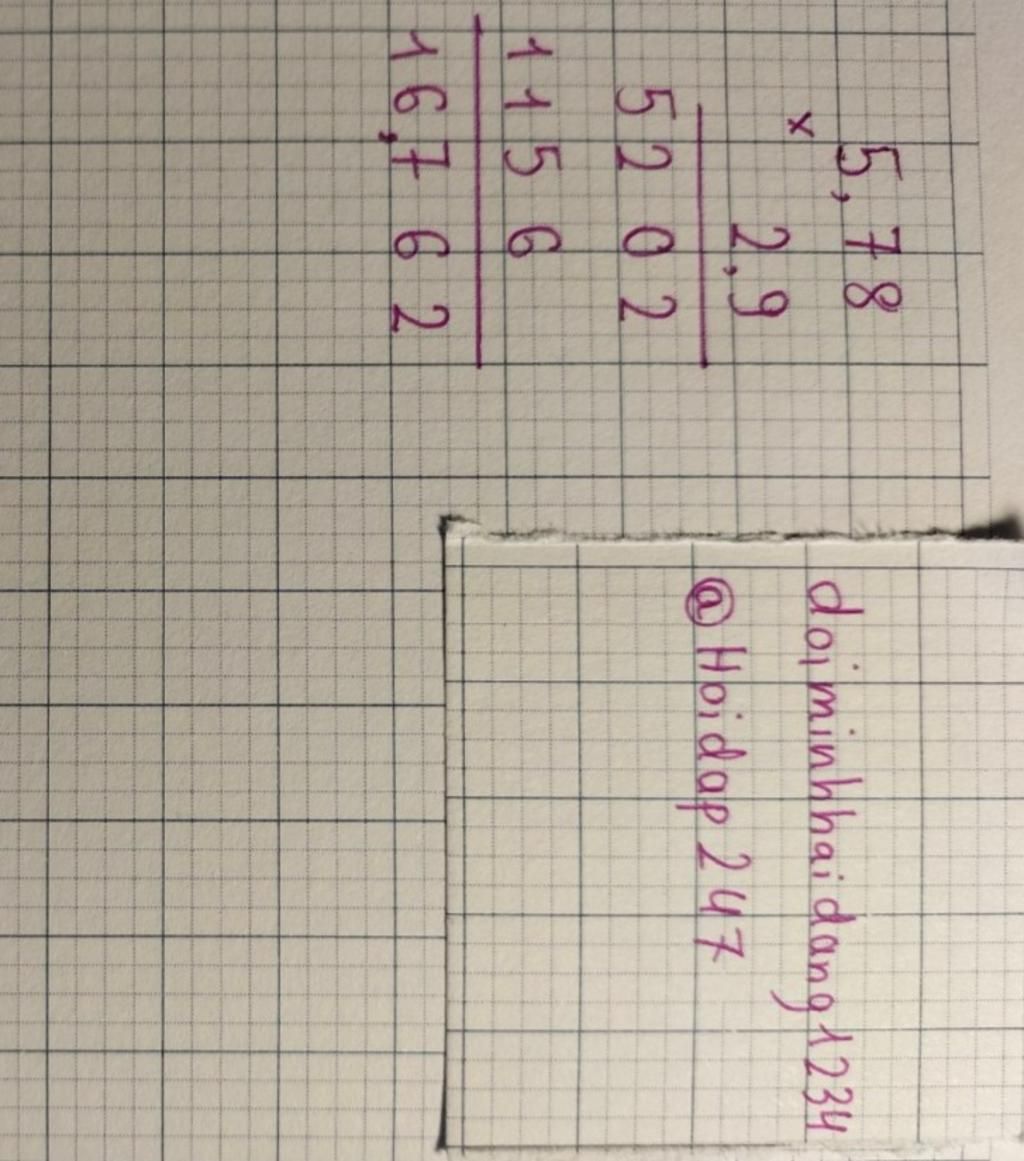 5,78
×
2,9
5202
1156
16,762
doiminhhaidang1234
@Hoidap247